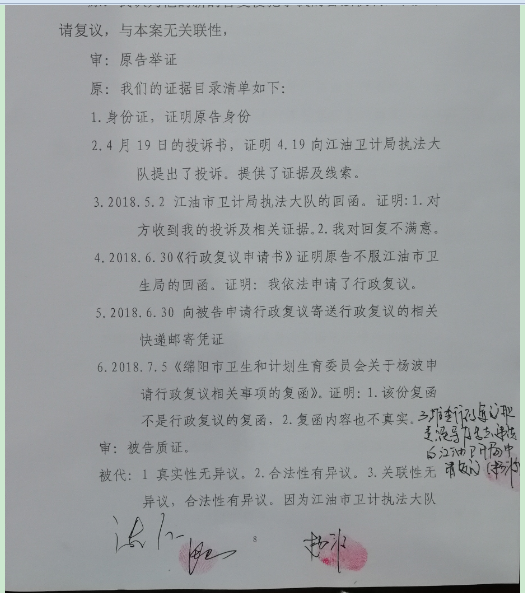 请复议，与本案无关联性，
审：原告举证
原：我们的证据目录清单如下：
1.身份证，证明原告身份
2.4月19日的投诉书，证明4.19向江油卫计局执法大
队提出了投诉。提供了证据及线索。
3.2018.5.2 江油市卫计局执法大队的回函。证明：1.对
方收到我的投诉及相关证据。2.我对回复不满意。
4.2018.6.30《行政复议申请书》证明原告不服江油市卫
生局的回函。证明：我依法申请了行政复议。
5.2018.6.30 向被告申请行政复议寄送行政复议的相关
快递邮寄凭证
6.2018.7.5《绵阳市卫生和计划生育委员会关于杨波申
请行政复议相关事项的复函》。证明：1.该份复函
不是行政复议的复函，2.复函内容也不真实。
审：被告质证。
被代：1 真实性无异议。2.合法性有异议。3.关联性无
异议，合法性有异议。因为江油市卫计执法大队
8